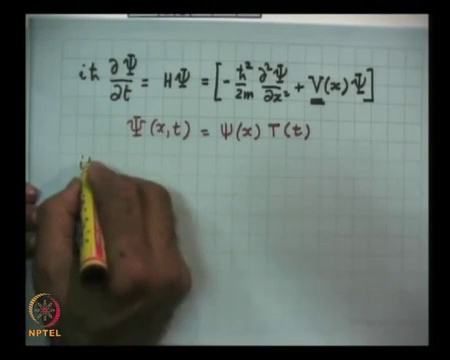 iħ ∂Ψ/∂t = HΨ = [ - ħ²/2m ∂²Ψ/∂x² + V(x)Ψ ]
Ψ(x,t) = ψ(x) T(t)
NPTEL